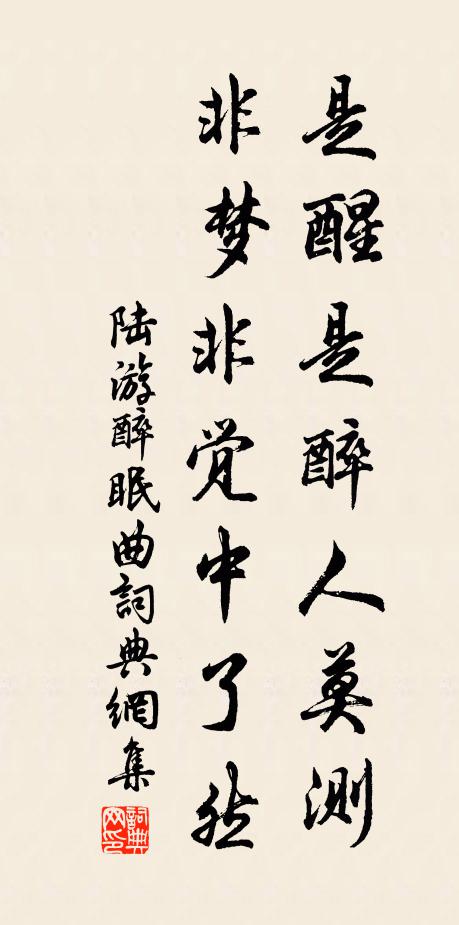 是醒是醉人莫测
非梦非觉中了然
陆游醉眠曲詞典網集
詞典网印